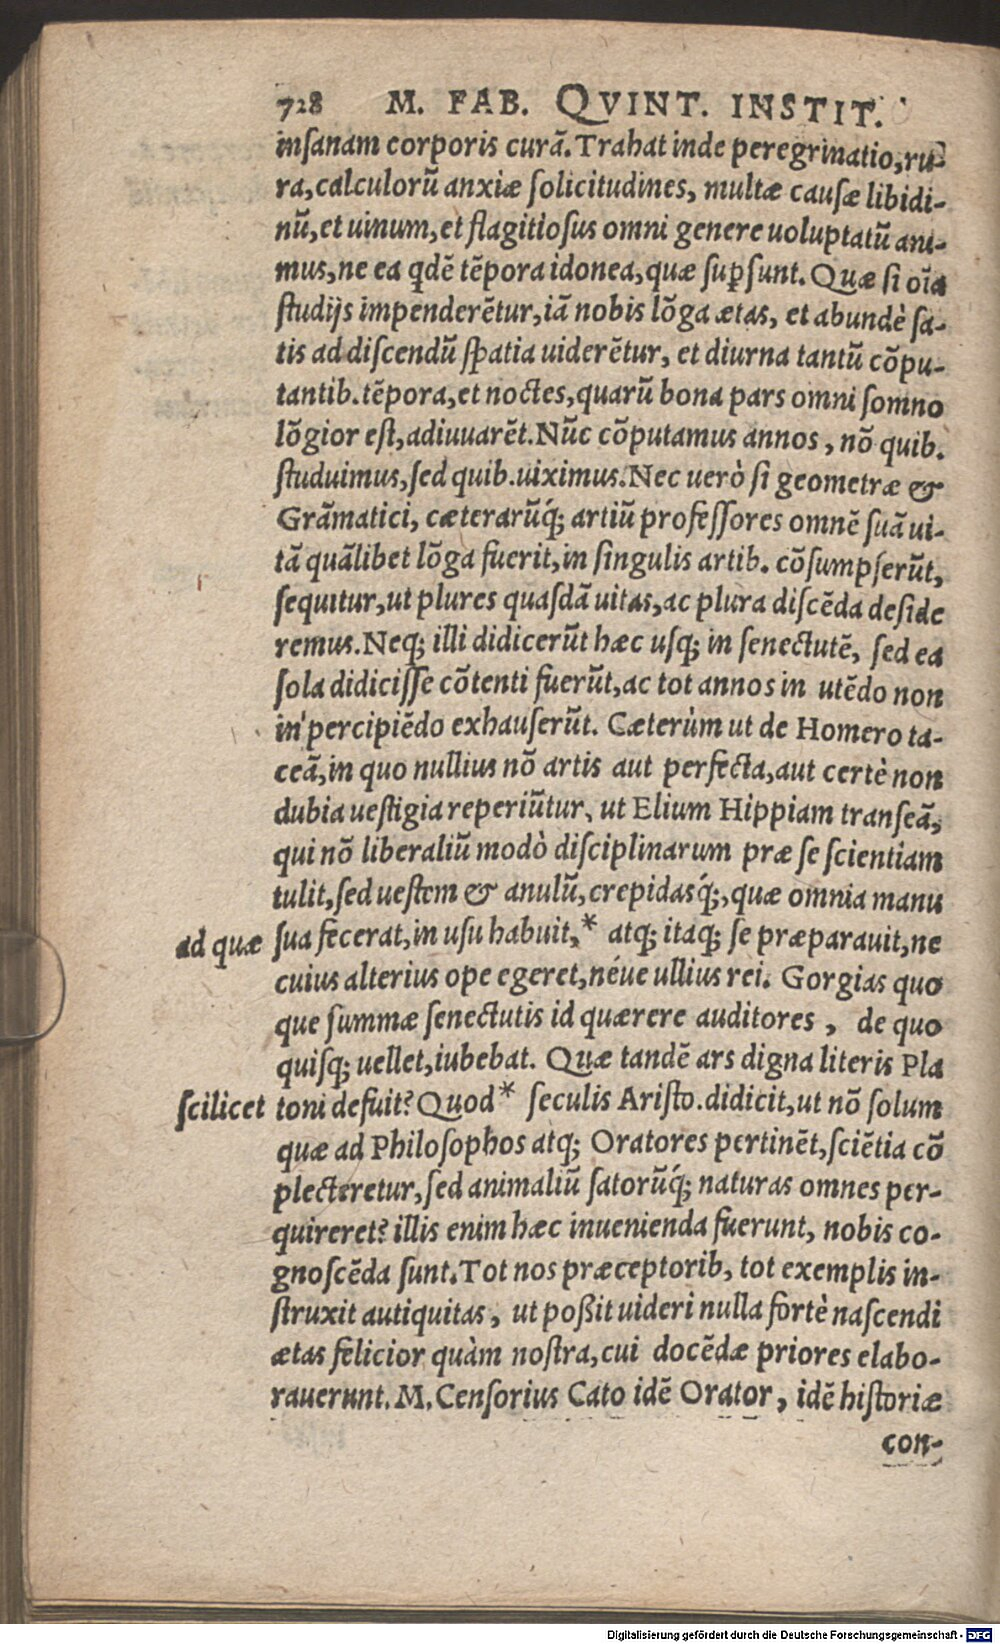 728 M. FAB. QVINT. INSTIT.
inſanam corporis curã. Trahat inde peregrinatio, ru-
ra, calculorũ anxiæ ſolicitudines, multæ cauſæ libidi-
nũ, et uinum, et flagitioſus omni genere uoluptatũ ani-
mus, ne ea qdẽ tẽpora idonea, quæ ſuꝑſunt. Quæ ſi oĩa
ſtudijs impenderẽtur, iã nobis lõga ætas, et abundè ſa-
tis ad diſcendũ ſpatia uiderẽtur, et diurna tantũ cõpu-
tantib. tẽpora, et noctes, quarũ bona pars omni ſomno
lõgior eſt, adiuuarẽt. Nũc cõputamus annos, nõ quib.
ſtuduimus, ſed quib. uiximus. Nec uerò ſi geometræ &
Grãmatici, cæterarũq́; artiũ profeſſores omnẽ ſuã ui-
tã quãlibet lõga fuerit, in ſingulis artib. cõſumpſerũt,
ſequitur, ut plures quaſdã uitas, ac plura diſcẽda deſide
remus. Neq; illi didicerũt hæc uſq; in ſenectutẽ, ſed ea
ſola didiciſſe cõtenti fuerũt, ac tot annos in utẽdo non
in percipiẽdo exhauſerũt. Cæterùm ut de Homero ta-
ceã, in quo nullius nõ artis aut perfecta, aut certè non
dubia ueſtigia reperiũtur, ut Elium Hippiam tranſeã,
qui nõ liberaliũ modò diſciplinarum præ ſe ſcientiam
tulit, ſed ueſtem & anulũ, crepidasq́;, quæ omnia manu
ad quæ ſua fecerat, in uſu habuit, * atq; itaq; ſe præparauit, ne
cuius alterius ope egeret, néue ullius rei. Gorgias quo
que ſummæ ſenectutis id quærere auditores, de quo
quiſq; uellet, iubebat. Quæ tandẽ ars digna literis Pla
ſcilicet toni defuit? Quod * ſeculis Ariſto. didicit, ut nõ ſolum
quæ ad Philoſophos atq; Oratores pertinẽt, ſciẽtia cõ
plecteretur, ſed animaliũ ſatorũq́; naturas omnes per-
quireret? illis enim hæc inuenienda fuerunt, nobis co-
gnoſcẽda ſunt. Tot nos præceptorib, tot exemplis in-
ſtruxit autiquitas, ut poßit uideri nulla fortè naſcendi
ætas felicior quàm noſtra, cui docẽdæ priores elabo-
rauerunt. M. Cenſorius Cato idẽ Orator, idẽ hiſtoriæ
con-
Digitalisierung gefördert durch die Deutsche Forschungsgemeinschaft - DFG